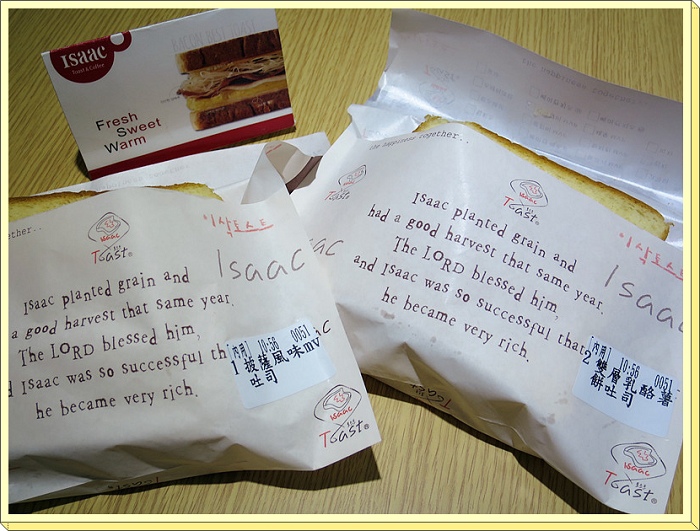 Isaac
Toast & Coffee
BACON BEST TOAST
Fresh
Sweet
Warm
ether..
isaac
Toast®
이삭토스트
Isaac
Isaac planted grain and
a good harvest that same year.
The LORD blessed him,
d Isaac was so successful th
he became very rich.
內用 10:56 0051
1 披薩風味mv
吐司
isaac
Toast®
the happiness together..
Toast
isaac
Toast®
이삭토스트
Isaac
Isaac planted grain and
had a good harvest that same year.
The LORD blessed him,
and Isaac was so successful that
he became very rich.
內用 10:56 0051-
2 雙層乳酪薯
餅吐司
isaac
Toast®